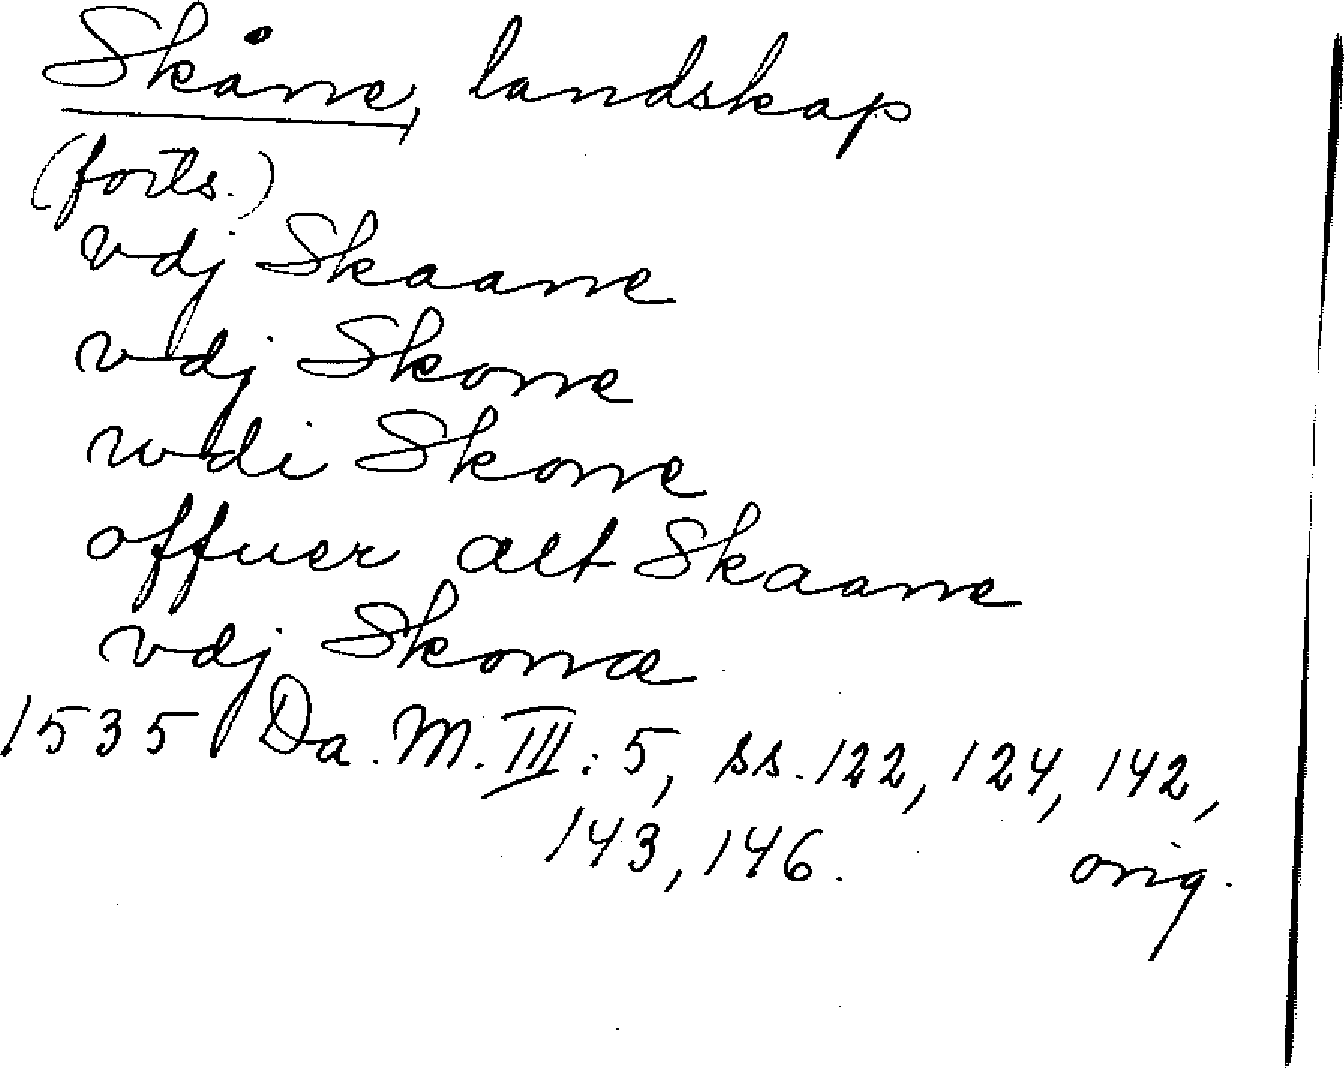 Skåne, landskap
(forts.)
vdj Skaane
vdj Skone
wdi Skone
offuer alt Skaane
vdj Skonæ
1535 Da. M. III: 5, ss. 122, 124, 142,
143, 146. orig.